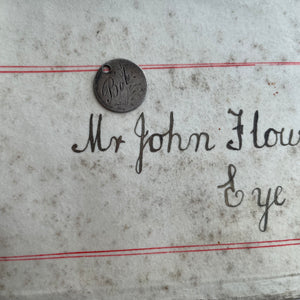 Bob.
Mr John Flow
Eye